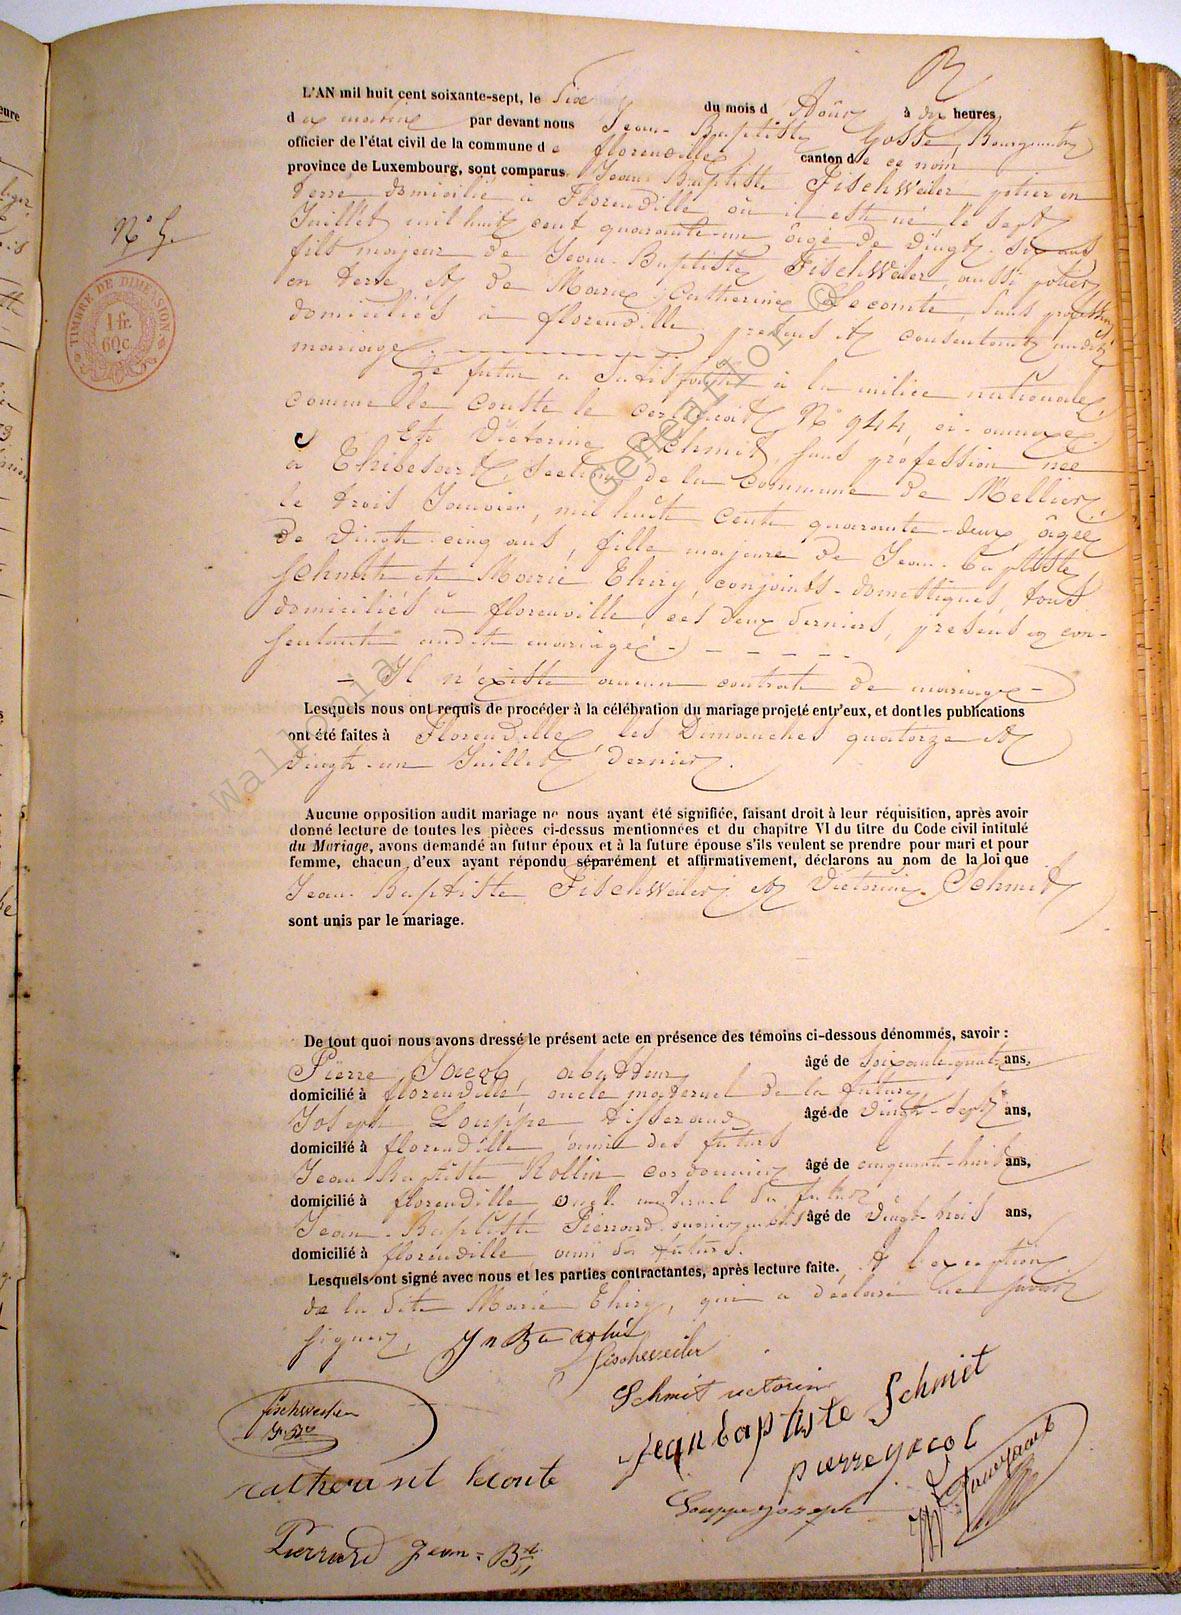 L'AN mil huit cent soixante-sept, le Six du mois d'Août à dix heures
du matin par devant nous Jean-Baptiste Gosse, Bourgmestre
officier de l'état civil de la commune de florenville canton de ce nom
province de Luxembourg, sont comparus Jean Baptiste Fischweiler potier en
terre domicilié à Florenville où il est né le sept
Juillet mil huit cent quarante-un âgé de vingt six ans,
fils majeur de Jean-Baptiste Fischweiler, aussi potier
en terre et de Marie Catherine Lecomte, sans profession
domiciliés à florenville, présens et consentant audit
mariage.
N° 5.
TIMBRE DE DIMENSION
1 fr.
60 c.
Le futur a satisfait à la milice nationale
comme le conste le certificat N° 944, ci-annexé.
Et Victorine Schmit, sans profession née
à Thibessart, section de la commune de Mellier,
le trois Janvier, mil huit cent quarante-deux, âgée
de vingt-cinq ans, fille majeure de Jean-Baptiste
Schmit et Marie Thiry, conjoints-domestiques, tous
domiciliés à florenville, ces deux derniers, présens et con-
sentant audit mariage.
Il n'existe aucun contrat de mariage
Lesquels nous ont requis de procéder à la célébration du mariage projeté entr'eux, et dont les publications
ont été faites à Florenville, les Dimanches quatorze et
vingt-un Juillet dernier.
Aucune opposition audit mariage ne nous ayant été signifiée, faisant droit à leur réquisition, après avoir
donné lecture de toutes les pièces ci-dessus mentionnées et du chapitre VI du titre du Code civil intitulé
du Mariage, avons demandé au futur époux et à la future épouse s'ils veulent se prendre pour mari et pour
femme, chacun d'eux ayant répondu séparément et affirmativement, déclarons au nom de la loi que
Jean-Baptiste Fischweiler et Victorine Schmit
sont unis par le mariage.
De tout quoi nous avons dressé le présent acte en présence des témoins ci-dessous dénommés, savoir :
Pierre Jacob âgé de soixante-quatre ans,
domicilié à florenville, oncle maternel de la future,
Joseph Louppe tisserand âgé de vingt-sept ans,
domicilié à florenville ami des futurs
Jean Baptiste Rollin cordonnier âgé de cinquante-huit ans,
domicilié à florenville, oncle maternel du futur
Jean-Baptiste Pierrard âgé de vingt-trois ans,
domicilié à florenville ami des futurs.
Lesquels ont signé avec nous et les parties contractantes, après lecture faite, à l'exception
de la dite Marie Thiry, qui a déclaré ne savoir
signer.
fischeweiler
Schmit victorine
fischweiler
Jean baptiste Schmit
pierre jacob
catherine lecomte
Louppe joseph
Pierrard Jean-Bte
Wallonia © Geneaflor